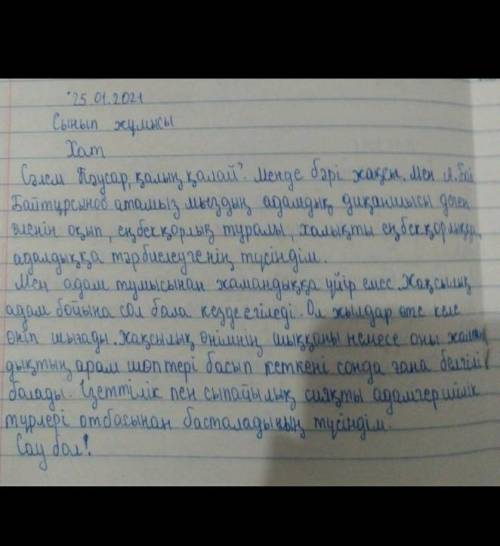 25.01.2021
Сынып жұмысы
Хат
Сәлем Кәусар, қалың қалай? Менде бәрі жақсы. Мен А.
Байтұрсынов атамыз мыздың адамдық диқаншысы деген
өленін оқып, еңбекқорлық туралы, халықты еңбекқорлыққа,
адалдыққа тәрбиелеугенің түсіндім.
Мен адам тумысынан жамандыққа үйір емес. Жақсылық
адам бойына сол бала кезде егіледі. Ол жылдар өте келе
өніп шығады. Жақсылық өнімнің шыққаны немесе оны жаман
дықтың арам шөптері басып кеткені сонда ғана белгілі
болады. Әдептілік пен сыпайылық сияқты адамгершілік
түрлері отбасынан басталадының түсіндім.
Сау бол!